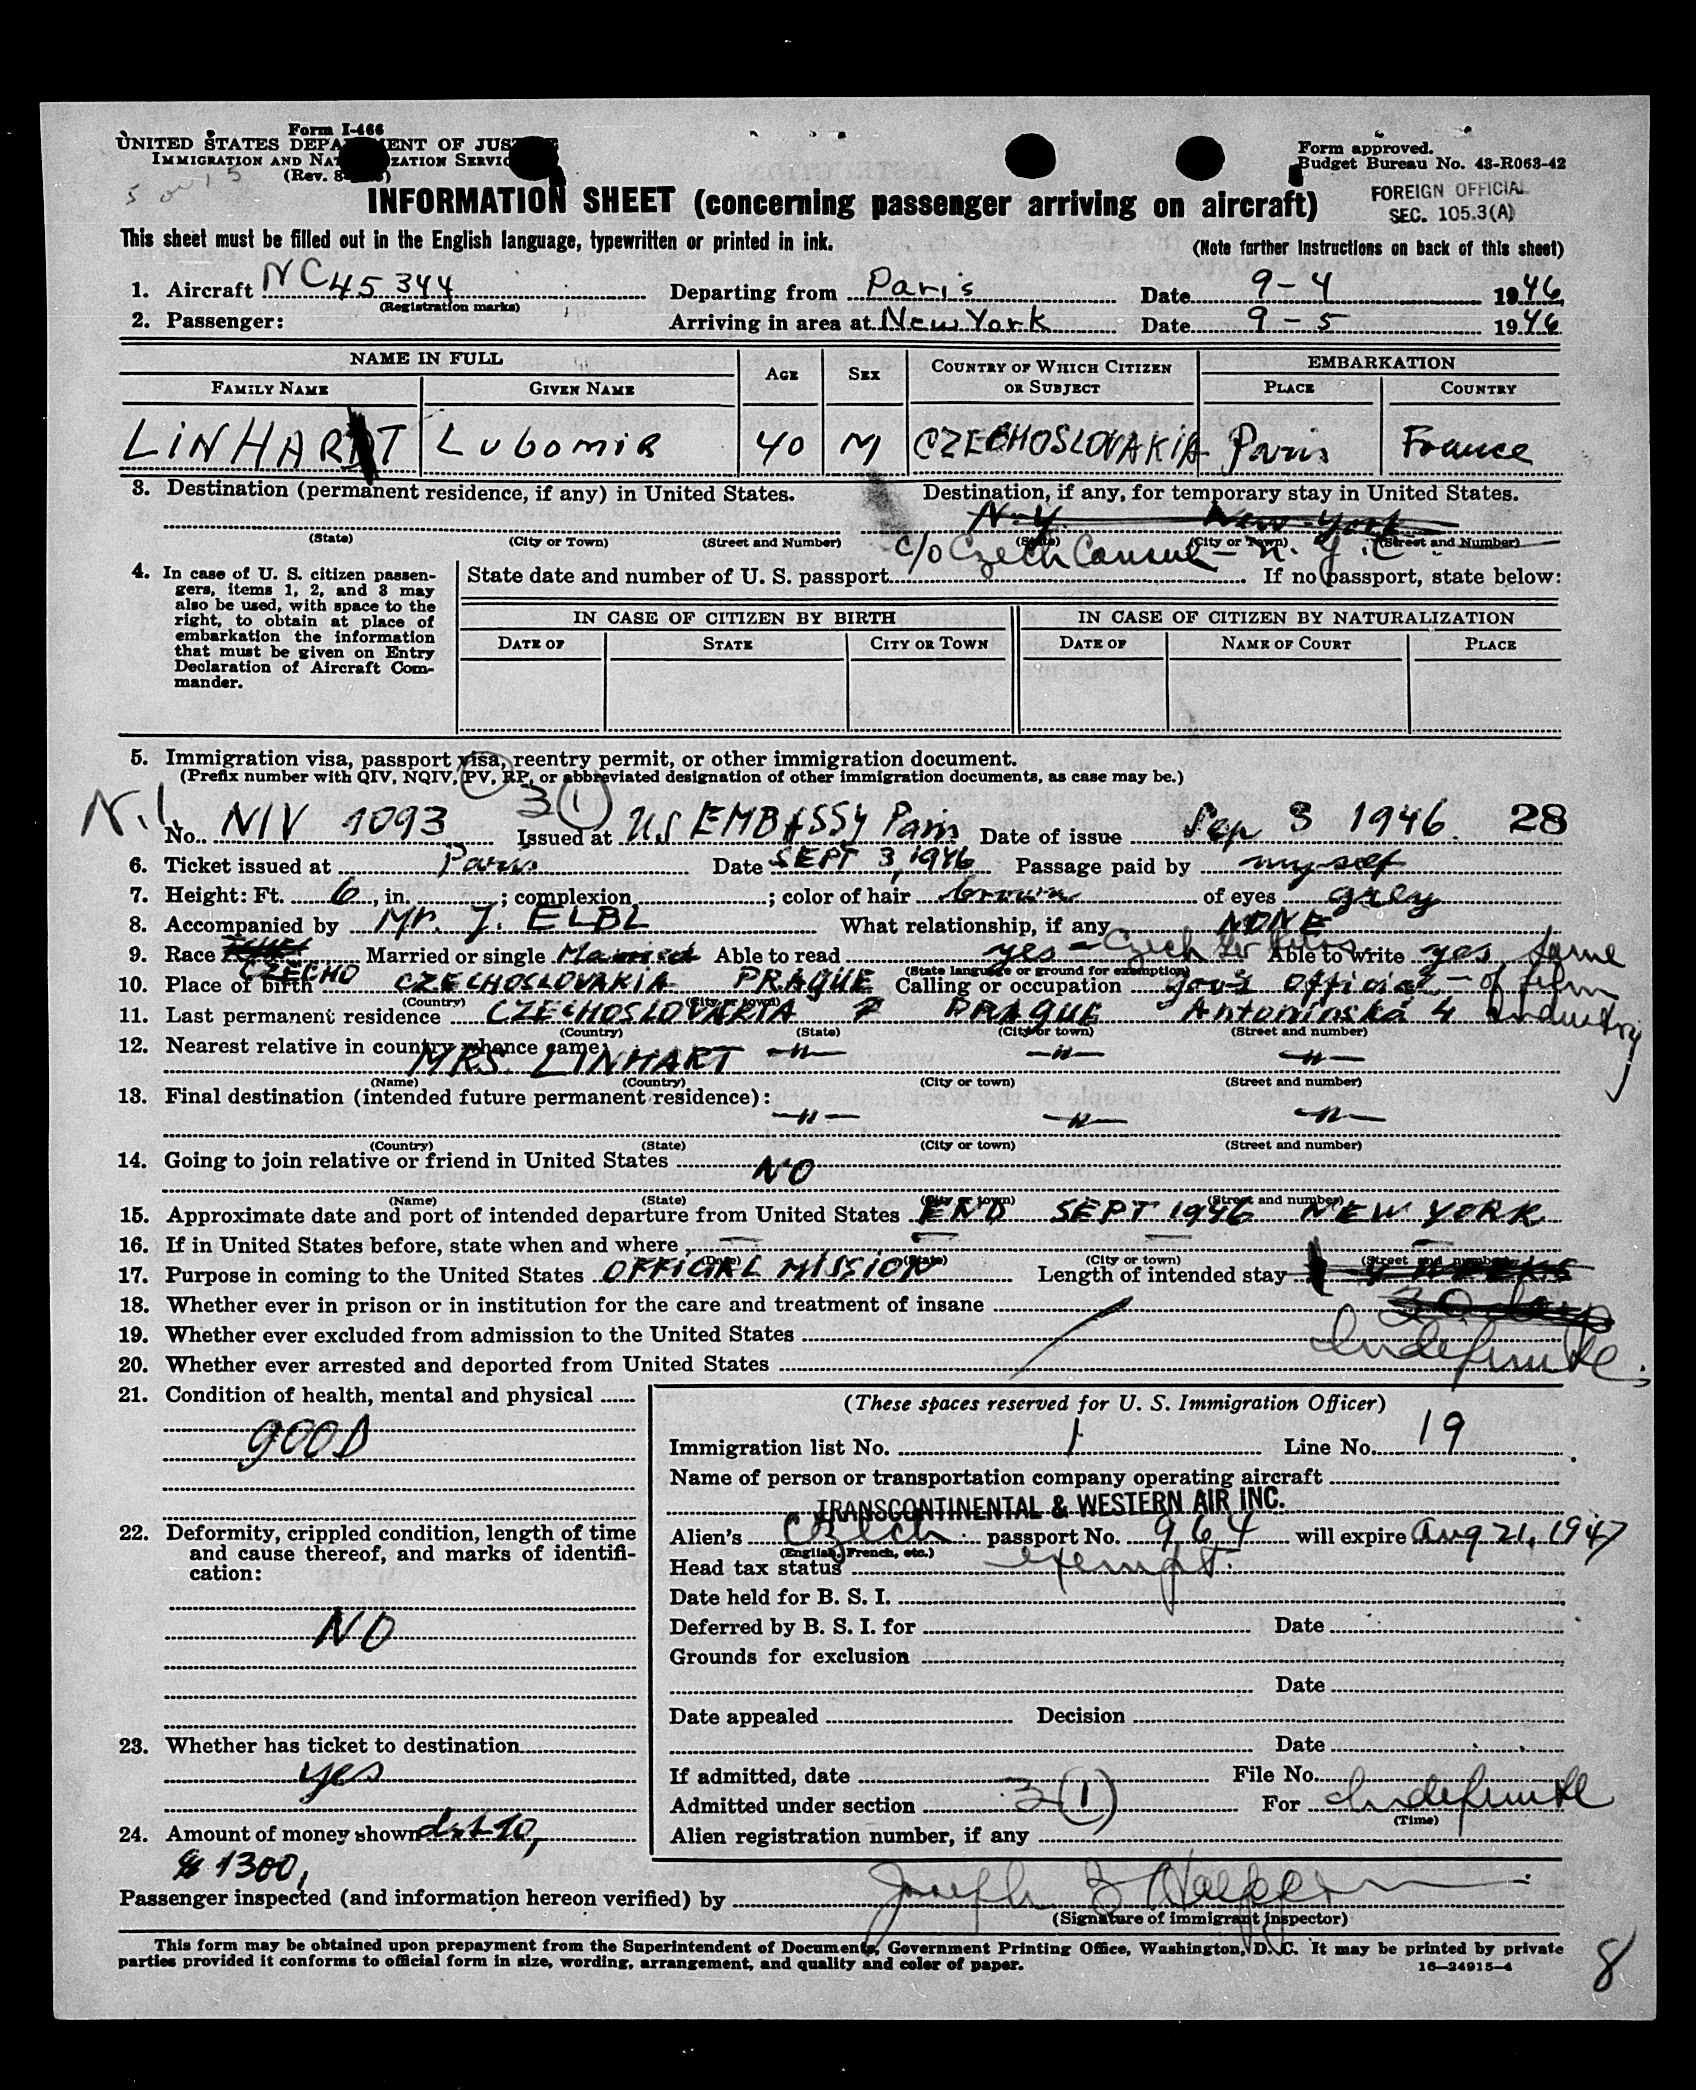 Form I-466
UNITED STATES DEPARTMENT OF JUSTICE
IMMIGRATION AND NATURALIZATION SERVICE
(Rev. 8
Form approved.
Budget Bureau No. 43-R063-42
FOREIGN OFFICIAL
SEC. 105.3(A)
INFORMATION SHEET (concerning passenger arriving on aircraft)
This sheet must be filled out in the English language, typewritten or printed in ink.
(Note further instructions on back of this sheet)
1. Aircraft NC45344 Departing from Paris Date 9-4 1946
(Registration marks)
2. Passenger: Arriving in area at New York Date 9-5 1946
NAME IN FULL AGE SEX COUNTRY OF WHICH CITIZEN OR SUBJECT EMBARKATION
FAMILY NAME GIVEN NAME PLACE COUNTRY
LINHART LUBOMIR 40 M CZECHOSLOVAKIA Paris France
3. Destination (permanent residence, if any) in United States. Destination, if any, for temporary stay in United States.
N.Y. New-York
(State) (City or Town) (Street and Number) (State) (City or Town) (Street and Number)
c/o Czech Consul - N.Y.C.
4. In case of U. S. citizen passengers, items 1, 2, and 3 may also be used, with space to the right, to obtain at place of embarkation the information that must be given on Entry Declaration of Aircraft Commander.
State date and number of U. S. passport If no passport, state below:
IN CASE OF CITIZEN BY BIRTH IN CASE OF CITIZEN BY NATURALIZATION
DATE OF STATE CITY OR TOWN DATE OF NAME OF COURT PLACE
5. Immigration visa, passport visa, reentry permit, or other immigration document.
(Prefix number with QIV, NQIV, PV, RP, or abbreviated designation of other immigration documents, as case may be.)
3(1)
N.I. No. NIV 1093 Issued at US EMBASSY Paris Date of issue Sep 3 1946. 28
6. Ticket issued at Paris Date SEPT 3, 1946 Passage paid by myself
7. Height: Ft. 6, in. ; complexion ; color of hair brown of eyes grey
8. Accompanied by Mr. J. ELBL What relationship, if any NONE
9. Race CZECHO Married or single Married Able to read yes - Czech Able to write yes same
(State language or ground for exemption)
10. Place of birth CZECHOSLOVAKIA PRAGUE Calling or occupation gov't official - of film industry
(Country) (City or town)
11. Last permanent residence CZECHOSLOVAKIA PRAGUE Antoninska 4
(Country) (State) (City or town) (Street and number)
12. Nearest relative in country whence came:
MRS. LINHART —"— —"— —"—
(Name) (Country) (City or town) (Street and number)
13. Final destination (intended future permanent residence):
—"— —"— —"—
(Country) (State) (City or town) (Street and number)
14. Going to join relative or friend in United States NO
(Name) (State) (City or town) (Street and number)
15. Approximate date and port of intended departure from United States END SEPT 1946 NEW YORK
16. If in United States before, state when and where — — — —
(Date) (State) (City or town) (Street and number)
17. Purpose in coming to the United States OFFICIAL MISSION Length of intended stay 4 WEEKS
30 days
Indefinite.
18. Whether ever in prison or in institution for the care and treatment of insane
19. Whether ever excluded from admission to the United States
20. Whether ever arrested and deported from United States
21. Condition of health, mental and physical
GOOD
22. Deformity, crippled condition, length of time and cause thereof, and marks of identification:
NO
23. Whether has ticket to destination
yes
24. Amount of money shown
$ 1300,
(These spaces reserved for U. S. Immigration Officer)
Immigration list No. 1 Line No. 19
Name of person or transportation company operating aircraft
TRANSCONTINENTAL & WESTERN AIR INC.
Alien's Czech passport No. 964 will expire Aug 21, 1947
(English, French, etc.)
Head tax status exempt.
Date held for B. S. I.
Deferred by B. S. I. for Date
Grounds for exclusion
Date
Date appealed Decision
Date
If admitted, date File No.
Admitted under section 3(1) For Indefinite
(Time)
Alien registration number, if any
Passenger inspected (and information hereon verified) by Joseph
(Signature of immigrant inspector)
This form may be obtained upon prepayment from the Superintendent of Documents, Government Printing Office, Washington, D. C. It may be printed by private
parties provided it conforms to official form in size, wording, arrangement, and quality and color of paper.
16—24915-4
8